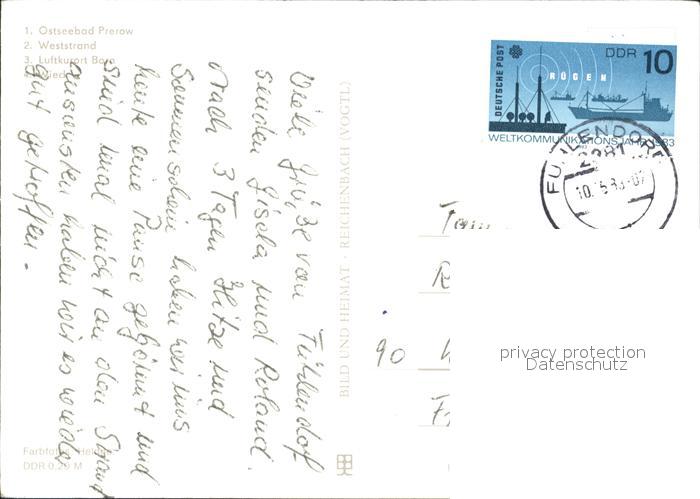 1. Ostseebad Prerow
2. Weststrand
3. Luftkurort Born
Viele Grüße von Fuhlendorf
senden Gisela und Roland.
Nach 3 Tagen Hitze und
Sonnenschein haben wir uns
heute eine Pause gegönnt und
sind mal nicht an den Strand
Ansonsten haben wir es wieder
gut getroffen.
Farbfotos:
DDR 0,20 M
BILD UND HEIMAT · REICHENBACH (VOGTL)
DEUTSCHE POST
DDR 10
RÜGEN
WELTKOMMUNIKATIONSJAHR 1983
FUHLENDORF
2381
90
privacy protection
Datenschutz